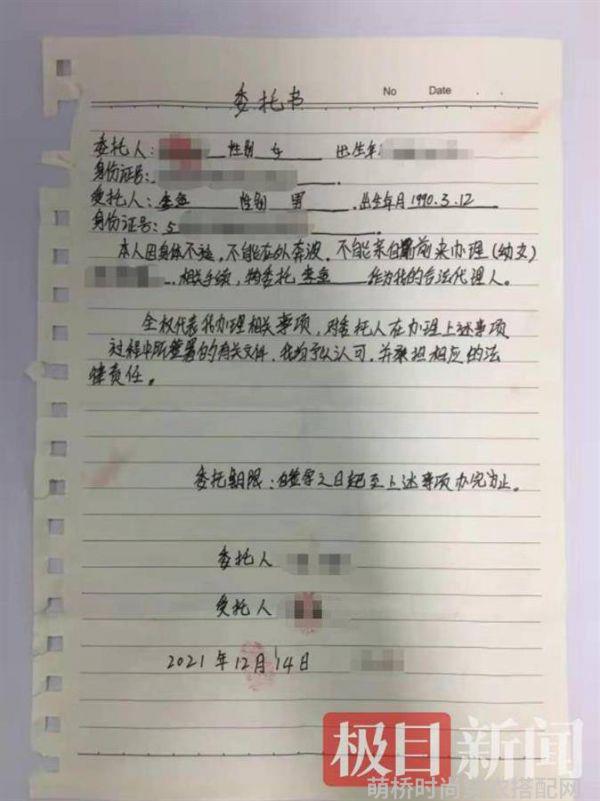 No Date . .
委托书
委托人: 性别 女 出生年
身份证号:
受托人: 李 性别 男 出生年月 1990.3.12
身份证号 5
本人因身体不适,不能在外奔波,不能亲自前来办理(幼女)
相关手续,特委托 李 作为我的合法代理人。
全权代表我办理相关事项,对委托人在办理上述事项
过程中所签署的有关文件,我均予以认可,并承担相应的法
律责任。
委托期限:自签字之日起至上述事项办完为止。
委托人
受托人
2021年12月14日
极目新闻
萌桥时尚 搭配网